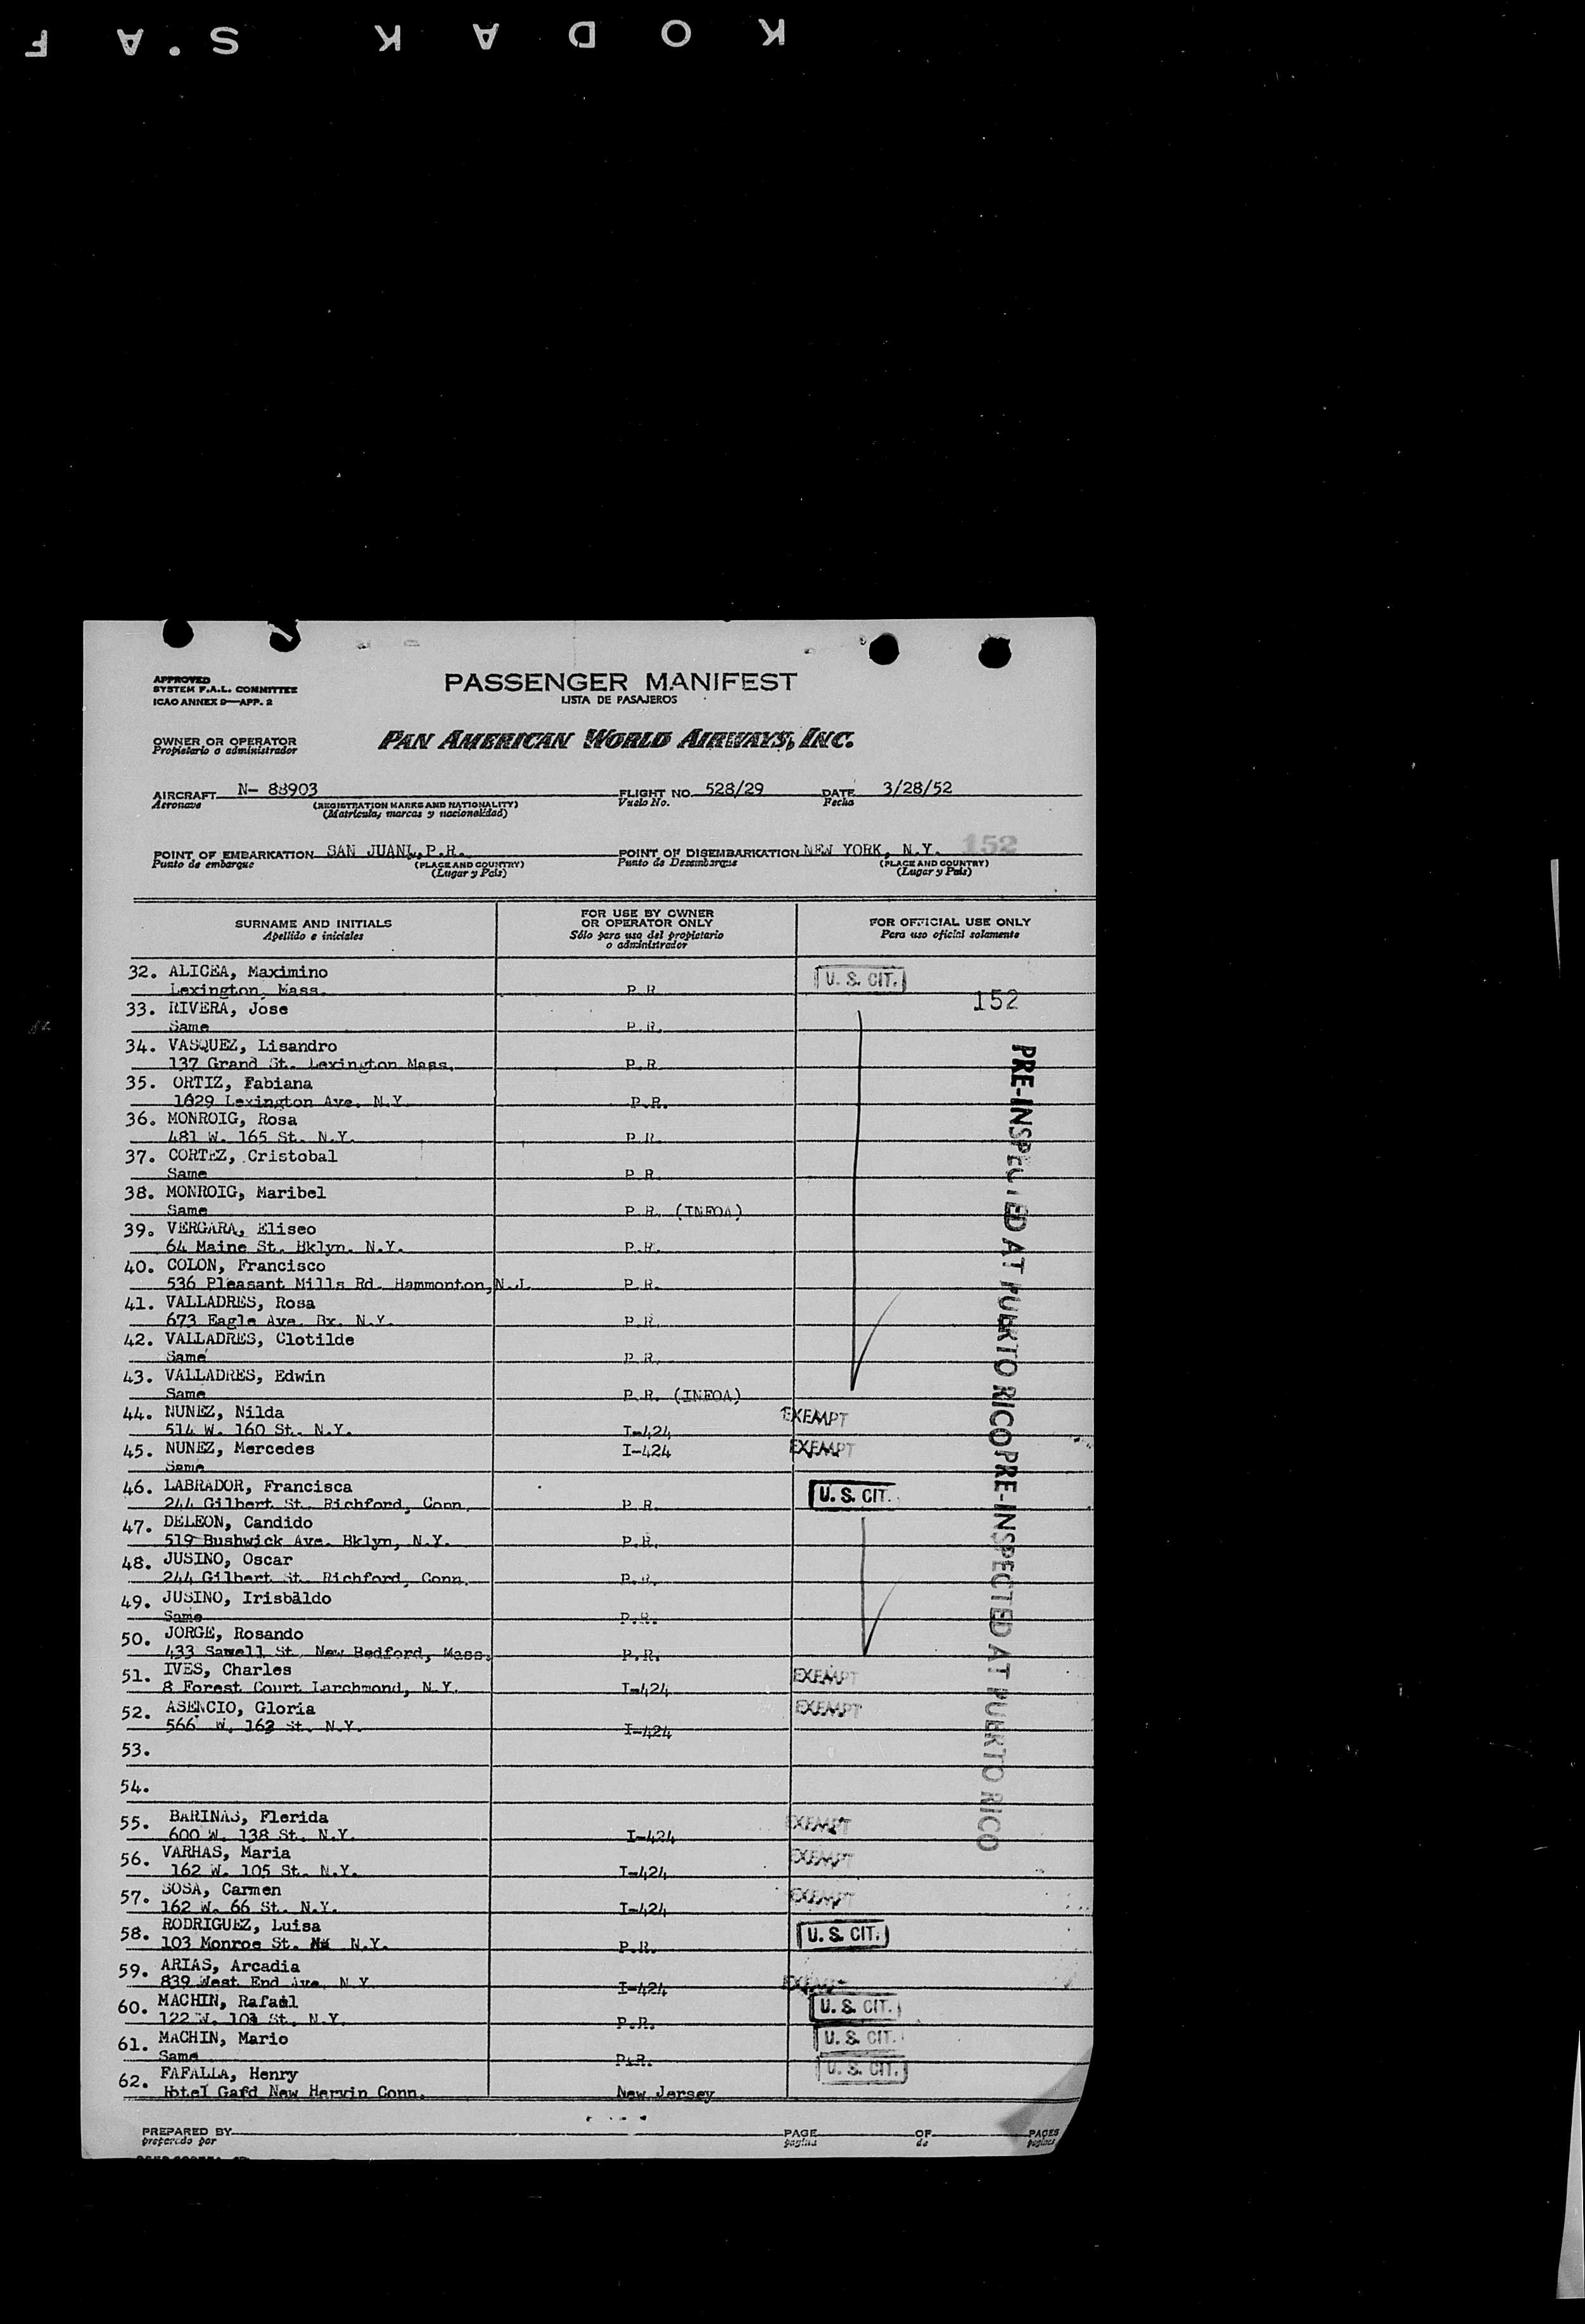 KODAK S.A F
PASSENGER MANIFEST
LISTA DE PASAJEROS
APPROVED
SYSTEM F.A.L. COMMITTEE
ICAO ANNEX 9—APP. 2
OWNER OR OPERATOR
Propietario o administrador
PAN AMERICAN WORLD AIRWAYS, INC.
AIRCRAFT N- 88903 FLIGHT NO. 528/29 DATE 3/28/52
Aeronave (REGISTRATION MARKS AND NATIONALITY) Vuelo No. Fecha
(Matricula, marcas y nacionalidad)
POINT OF EMBARKATION SAN JUAN, P.R. POINT OF DISEMBARKATION NEW YORK, N.Y. 152
Punto de embarque (PLACE AND COUNTRY) Punto de Desembarque (PLACE AND COUNTRY)
(Lugar y País) (Lugar y País)
SURNAME AND INITIALS
Apellido e iniciales
FOR USE BY OWNER
OR OPERATOR ONLY
Sólo para uso del propietario
o administrador
FOR OFFICIAL USE ONLY
Para uso oficial solamente
32. ALICEA, Maximino U. S. CIT.
Lexington, Mass. P.R.
152
33. RIVERA, Jose
Same P.R.
34. VASQUEZ, Lisandro
137 Grand St. Lexington Mass. P.R.
35. ORTIZ, Fabiana
1029 Lexington Ave. N.Y. P.R.
36. MONROIG, Rosa
481 W. 165 St. N.Y. P.R.
37. CORTEZ, Cristobal
Same P.R.
38. MONROIG, Maribel
Same P.R. (INFOA)
39. VERGARA, Eliseo
64 Maine St. Bklyn. N.Y. P.R.
40. COLON, Francisco
536 Pleasant Mills Rd. Hammonton, N.J. P.R.
41. VALLADRES, Rosa
673 Eagle Ave. Bx. N.Y. P.R.
42. VALLADRES, Clotilde
Same P.R.
43. VALLADRES, Edwin
Same P.R. (INFOA)
44. NUNEZ, Nilda EXEMPT
514 W. 160 St. N.Y. I-424
45. NUNEZ, Mercedes I-424 EXEMPT
Same
46. LABRADOR, Francisca U. S. CIT.
244 Gilbert St. Richford, Conn. P.R.
47. DELEON, Candido
519 Bushwick Ave. Bklyn, N.Y. P.R.
48. JUSINO, Oscar
244 Gilbert St. Richford, Conn. P.R.
49. JUSINO, Irisbaldo
Same P.R.
50. JORGE, Rosando
433 Sawell St. New Bedford, Mass. P.R.
51. IVES, Charles EXEMPT
8 Forest Court Larchmond, N.Y. I-424
52. ASENCIO, Gloria EXEMPT
566 W. 162 St. N.Y. I-424
53.
54.
55. BARINAS, Flerida EXEMPT
600 W. 138 St. N.Y. I-424
56. VARHAS, Maria EXEMPT
162 W. 105 St. N.Y. I-424
57. SOSA, Carmen EXEMPT
162 W. 66 St. N.Y. I-424
58. RODRIGUEZ, Luisa U. S. CIT.
103 Monroe St. N.Y. P.R.
59. ARIAS, Arcadia
839 West End Ave. N.Y. I-424 EXEMPT
60. MACHIN, Rafael U. S. CIT.
122 W. 101 St. N.Y. P.R.
61. MACHIN, Mario U. S. CIT.
Same P.R.
62. FAFALLA, Henry U. S. CIT.
Hotel Gafd New Hervin Conn. New Jersey
PRE-INSPECTED AT PUERTO RICO PRE-INSPECTED AT PUERTO RICO
PREPARED BY PAGE OF PAGES
preparado por pagina de paginas